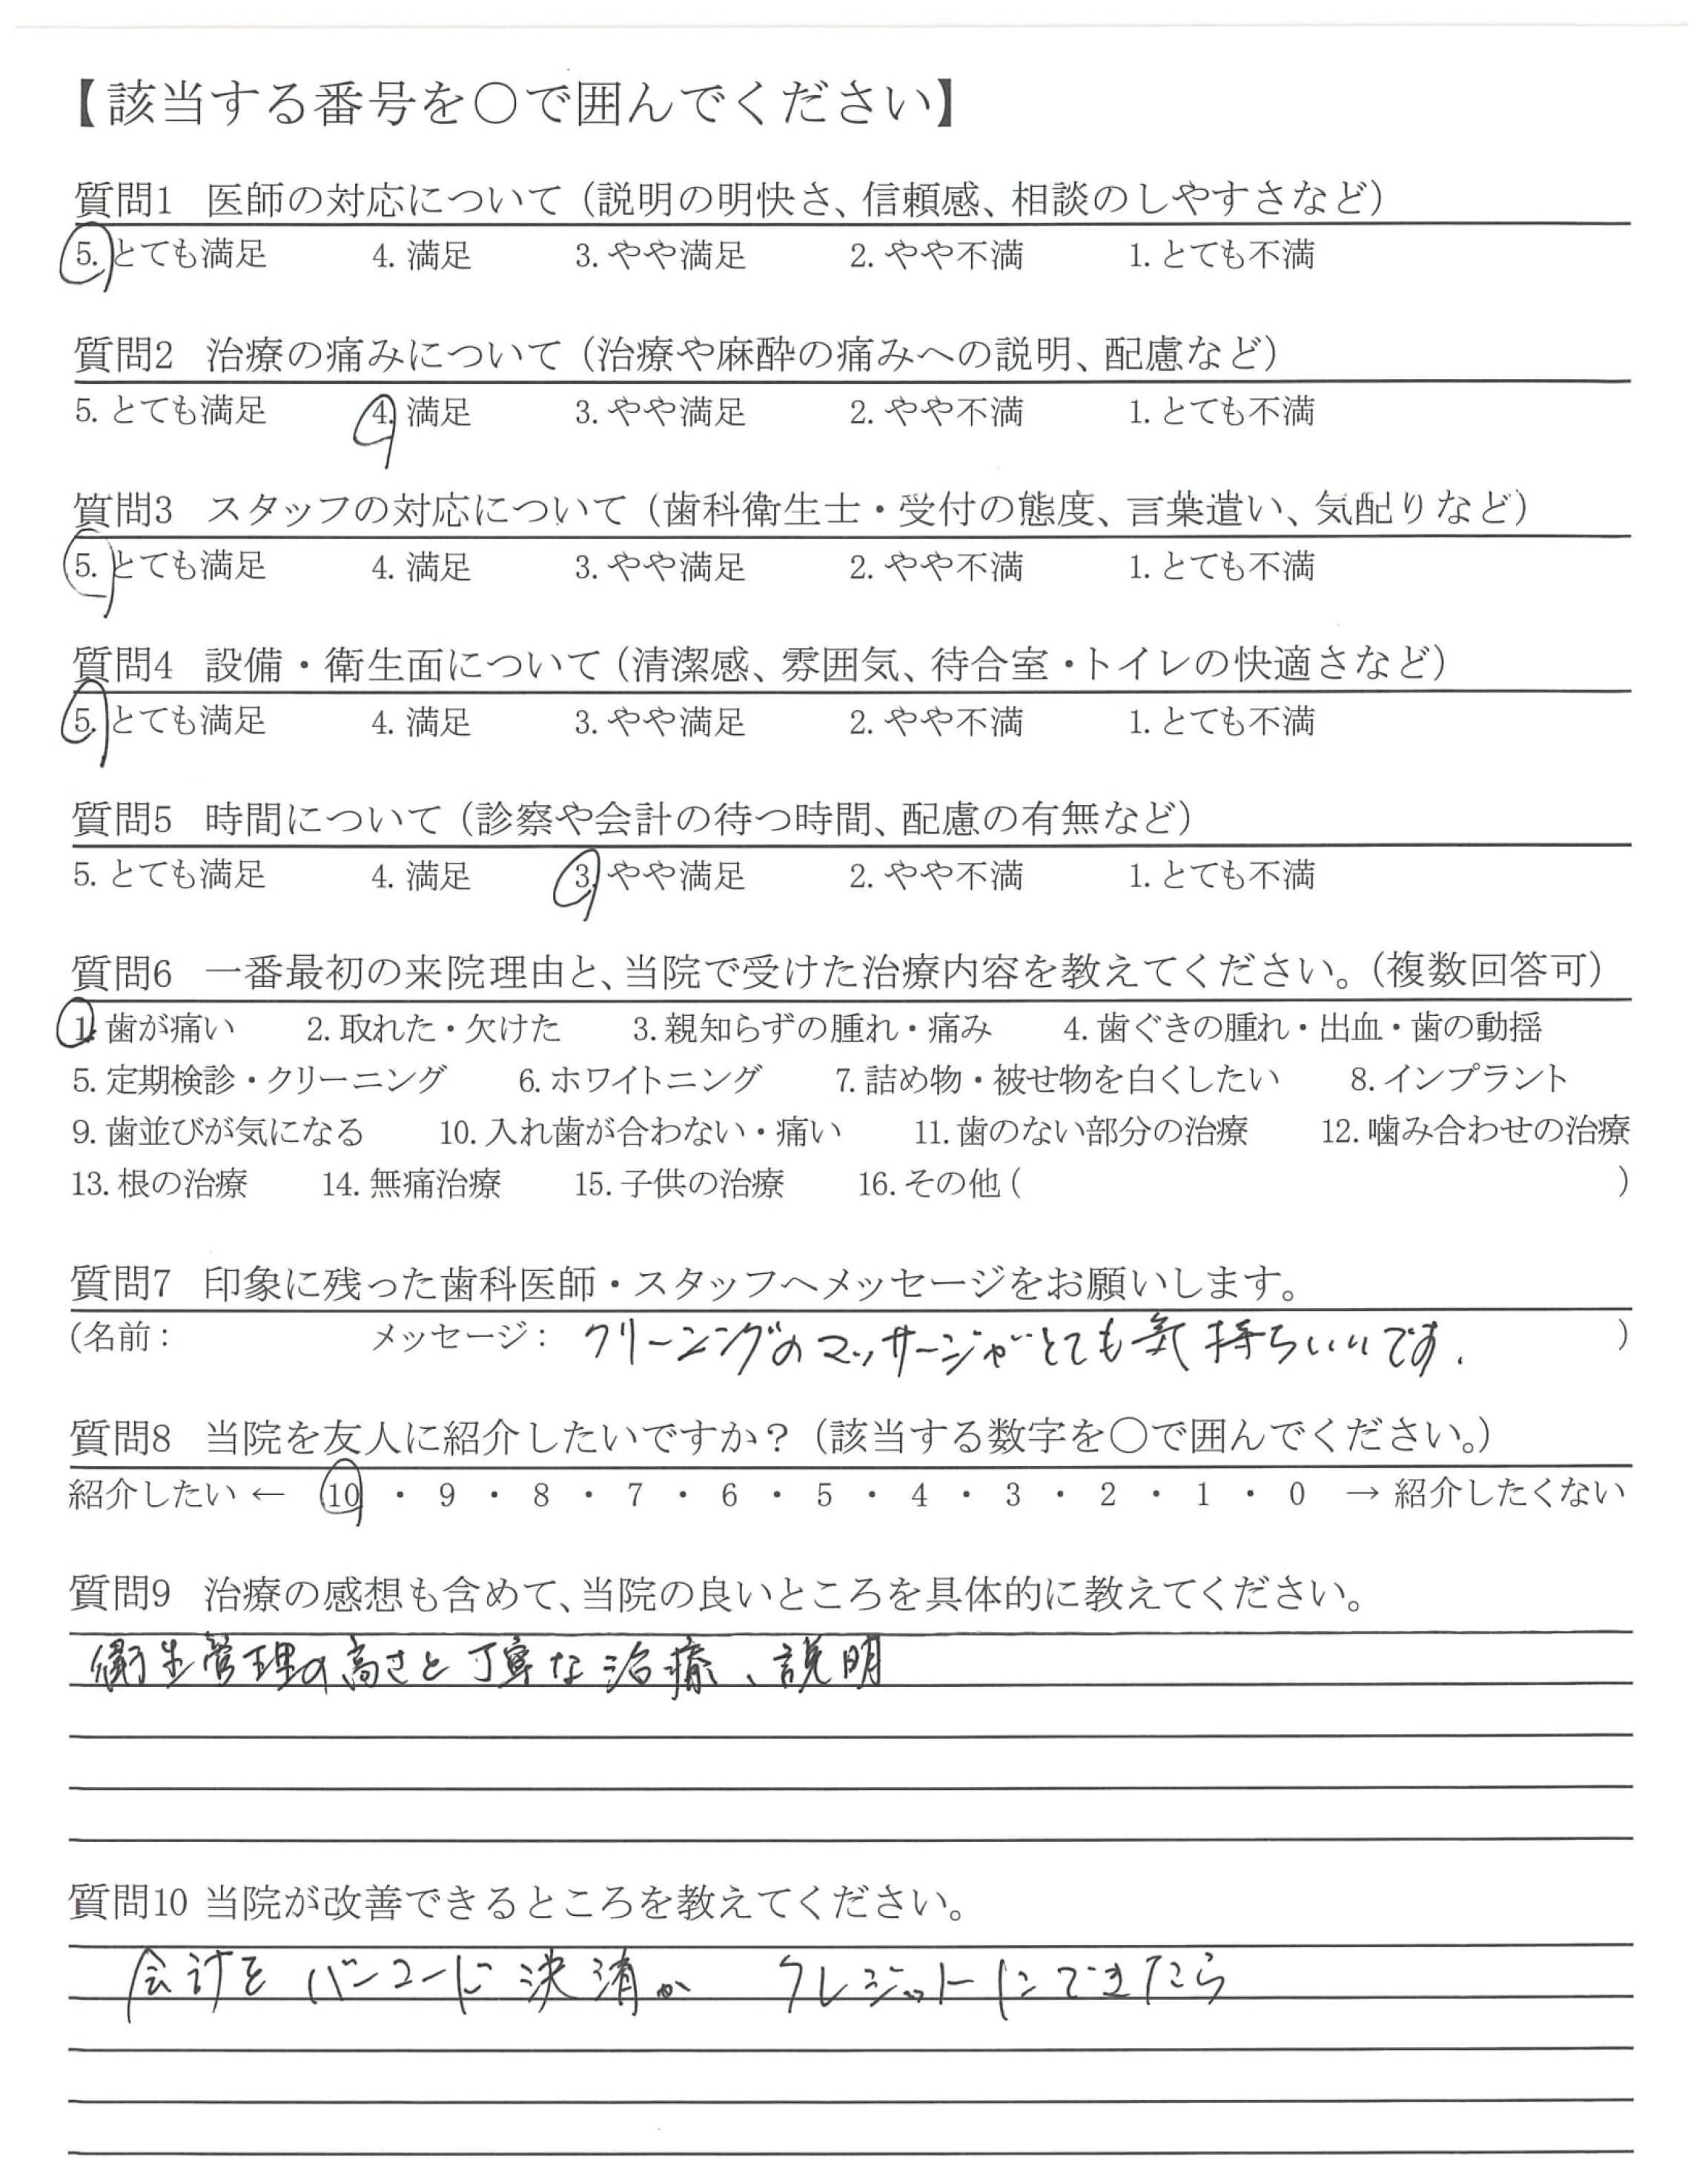 【該当する番号を〇で囲んでください】
質問1 医師の対応について（説明の明快さ、信頼感、相談のしやすさなど）
5. とても満足 4. 満足 3. やや満足 2. やや不満 1. とても不満
質問2 治療の痛みについて（治療や麻酔の痛みへの説明、配慮など）
5. とても満足 4. 満足 3. やや満足 2. やや不満 1. とても不満
質問3 スタッフの対応について（歯科衛生士・受付の態度、言葉遣い、気配りなど）
5. とても満足 4. 満足 3. やや満足 2. やや不満 1. とても不満
質問4 設備・衛生面について（清潔感、雰囲気、待合室・トイレの快適さなど）
5. とても満足 4. 満足 3. やや満足 2. やや不満 1. とても不満
質問5 時間について（診察や会計の待つ時間、配慮の有無など）
5. とても満足 4. 満足 3. やや満足 2. やや不満 1. とても不満
質問6 一番最初の来院理由と、当院で受けた治療内容を教えてください。（複数回答可）
1. 歯が痛い 2. 取れた・欠けた 3. 親知らずの腫れ・痛み 4. 歯ぐきの腫れ・出血・歯の動揺
5. 定期検診・クリーニング 6. ホワイトニング 7. 詰め物・被せ物を白くしたい 8. インプラント
9. 歯並びが気になる 10. 入れ歯が合わない・痛い 11. 歯のない部分の治療 12. 噛み合わせの治療
13. 根の治療 14. 無痛治療 15. 子供の治療 16. その他（ ）
質問7 印象に残った歯科医師・スタッフへメッセージをお願いします。
（名前： メッセージ： クリーニングのマッサージがとても気持ちいいです. ）
質問8 当院を友人に紹介したいですか？（該当する数字を〇で囲んでください。）
紹介したい ← 10 ・ 9 ・ 8 ・ 7 ・ 6 ・ 5 ・ 4 ・ 3 ・ 2 ・ 1 ・ 0 → 紹介したくない
質問9 治療の感想も含めて、当院の良いところを具体的に教えてください。
衛生管理の高さと丁寧な治療、説明
質問10 当院が改善できるところを教えてください。
会計をバーコード決済か クレジットにできたら